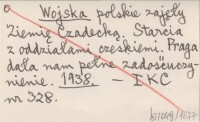 Wojska polskie zajęły
Ziemię Czadecką. Starcia
z oddziałami czeskiemi. Praga
dała nam pełne zadośćuczy-
nienie. 1938. — IKC
nr 328.